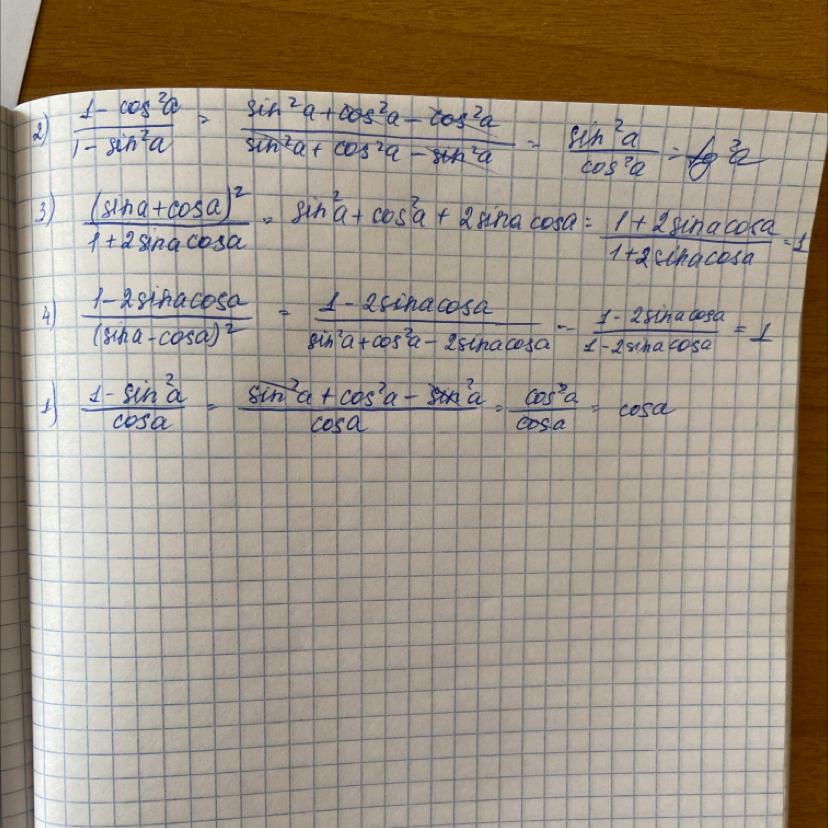 2) (1 - cos²a)/(1 - sin²a) = (sin²a + cos²a - cos²a)/(sin²a + cos²a - sin²a) = sin²a/cos²a = tg²a
3) (sina + cosa)²/(1 + 2sinacosa) = sin²a + cos²a + 2sinacosa = (1 + 2sinacosa)/(1 + 2sinacosa) = 1
4) (1 - 2sinacosa)/(sina - cosa)² = (1 - 2sinacosa)/(sin²a + cos²a - 2sinacosa) = (1 - 2sinacosa)/(1 - 2sinacosa) = 1
1) (1 - sin²a)/cosa = (sin²a + cos²a - sin²a)/cosa = cos²a/cosa = cosa